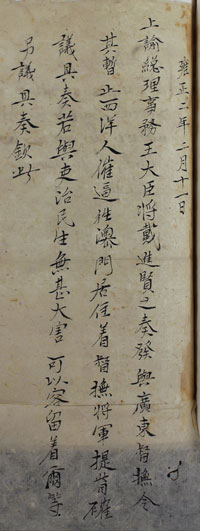 雍正二年二月十一日
上諭總理事務王大臣將戴進賢之奏發與廣東督撫令
其暫止西洋人催逼往澳門居住着督撫將軍提苛確
議具奏若與吏治民生無甚大害可以容留着爾等
另議具奏欽此